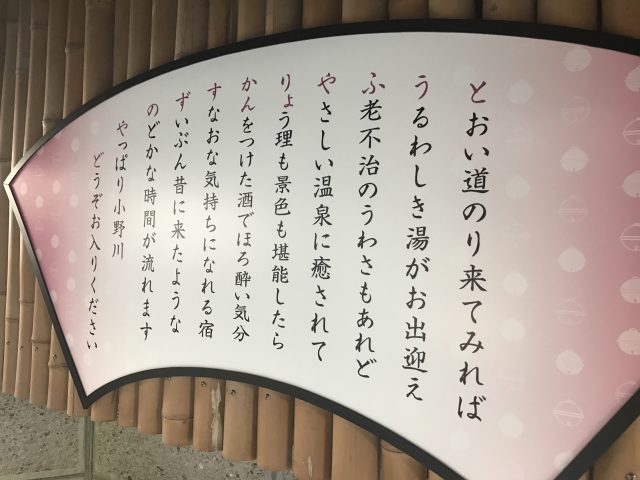 とおい道のり来てみれば
うるわしき湯がお出迎え
ふ老不治のうわさもあれど
やさしい温泉に癒されて
りょう理も景色も堪能したら
かんをつけた酒でほろ酔い気分
すなおな気持ちになれる宿
ずいぶん昔に来たような
のどかな時間が流れます
やっぱり小野川
どうぞお入りください